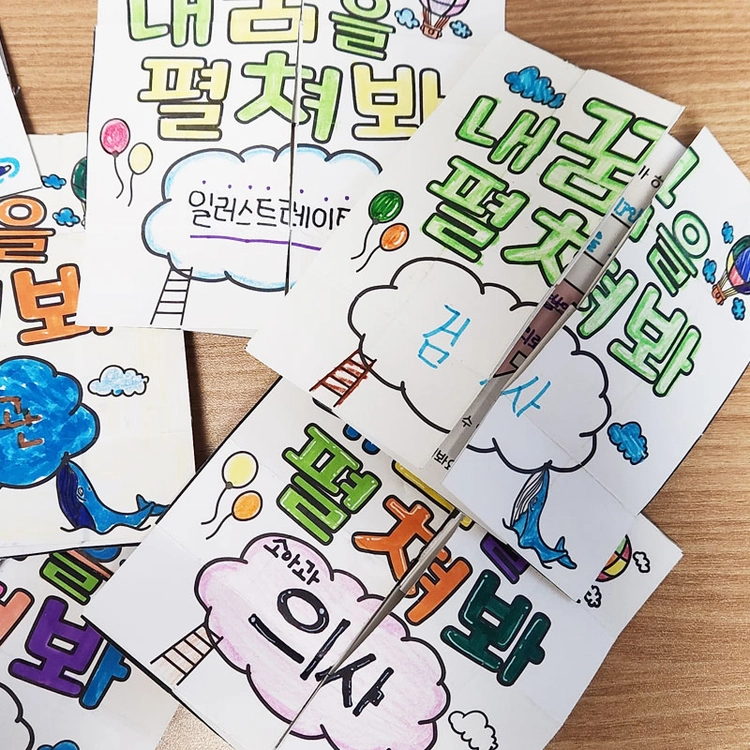 내꿈을
펼쳐봐
일러스트레이터
내꿈을
펼쳐봐
검사
을
봐
관
펼쳐봐
소아과
의사
봐